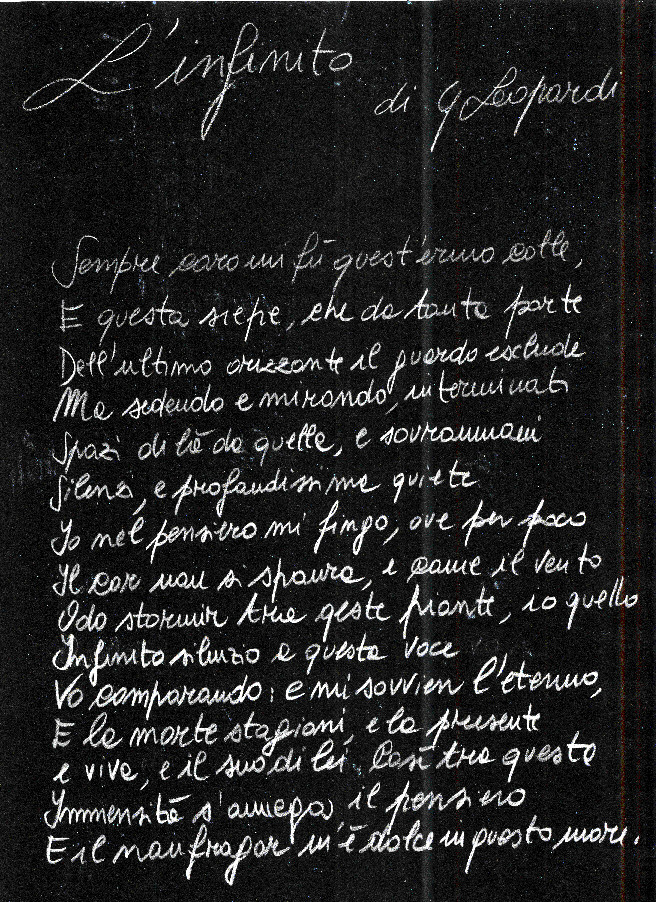 L'infinito
di G Leopardi
Sempre caro mi fù quest'ermo colle,
E questa siepe, che da tanta parte
Dell'ultimo orizzonte il guardo esclude
Ma sedendo e mirando, interminati
Spazi di là da quella, e sovraumani
Silenzi, e profondissima quiete
Io nel pensiero mi fingo, ove per poco
Il cor non si spaura, e come il vento
Odo stormir tra queste piante, io quello
Infinito silenzio a questa voce
Vo comparando: e mi sovvien l'eterno,
E le morte stagioni, e la presente
e viva, e il suo di lei. Così tra questa
Immensità s'annega il pensiero
E il naufragar m'è dolce in questo mare.